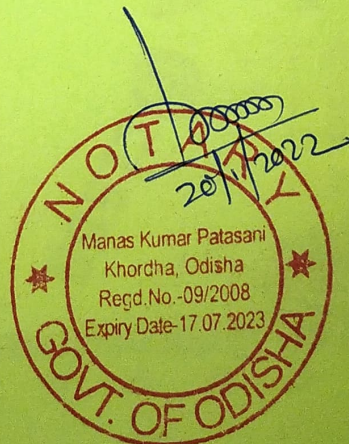 20/1/2022
NOTARY
Manas Kumar Patasani
Khordha, Odisha
Regd.No.-09/2008
Expiry Date-17.07.2023
GOVT. OF ODISHA